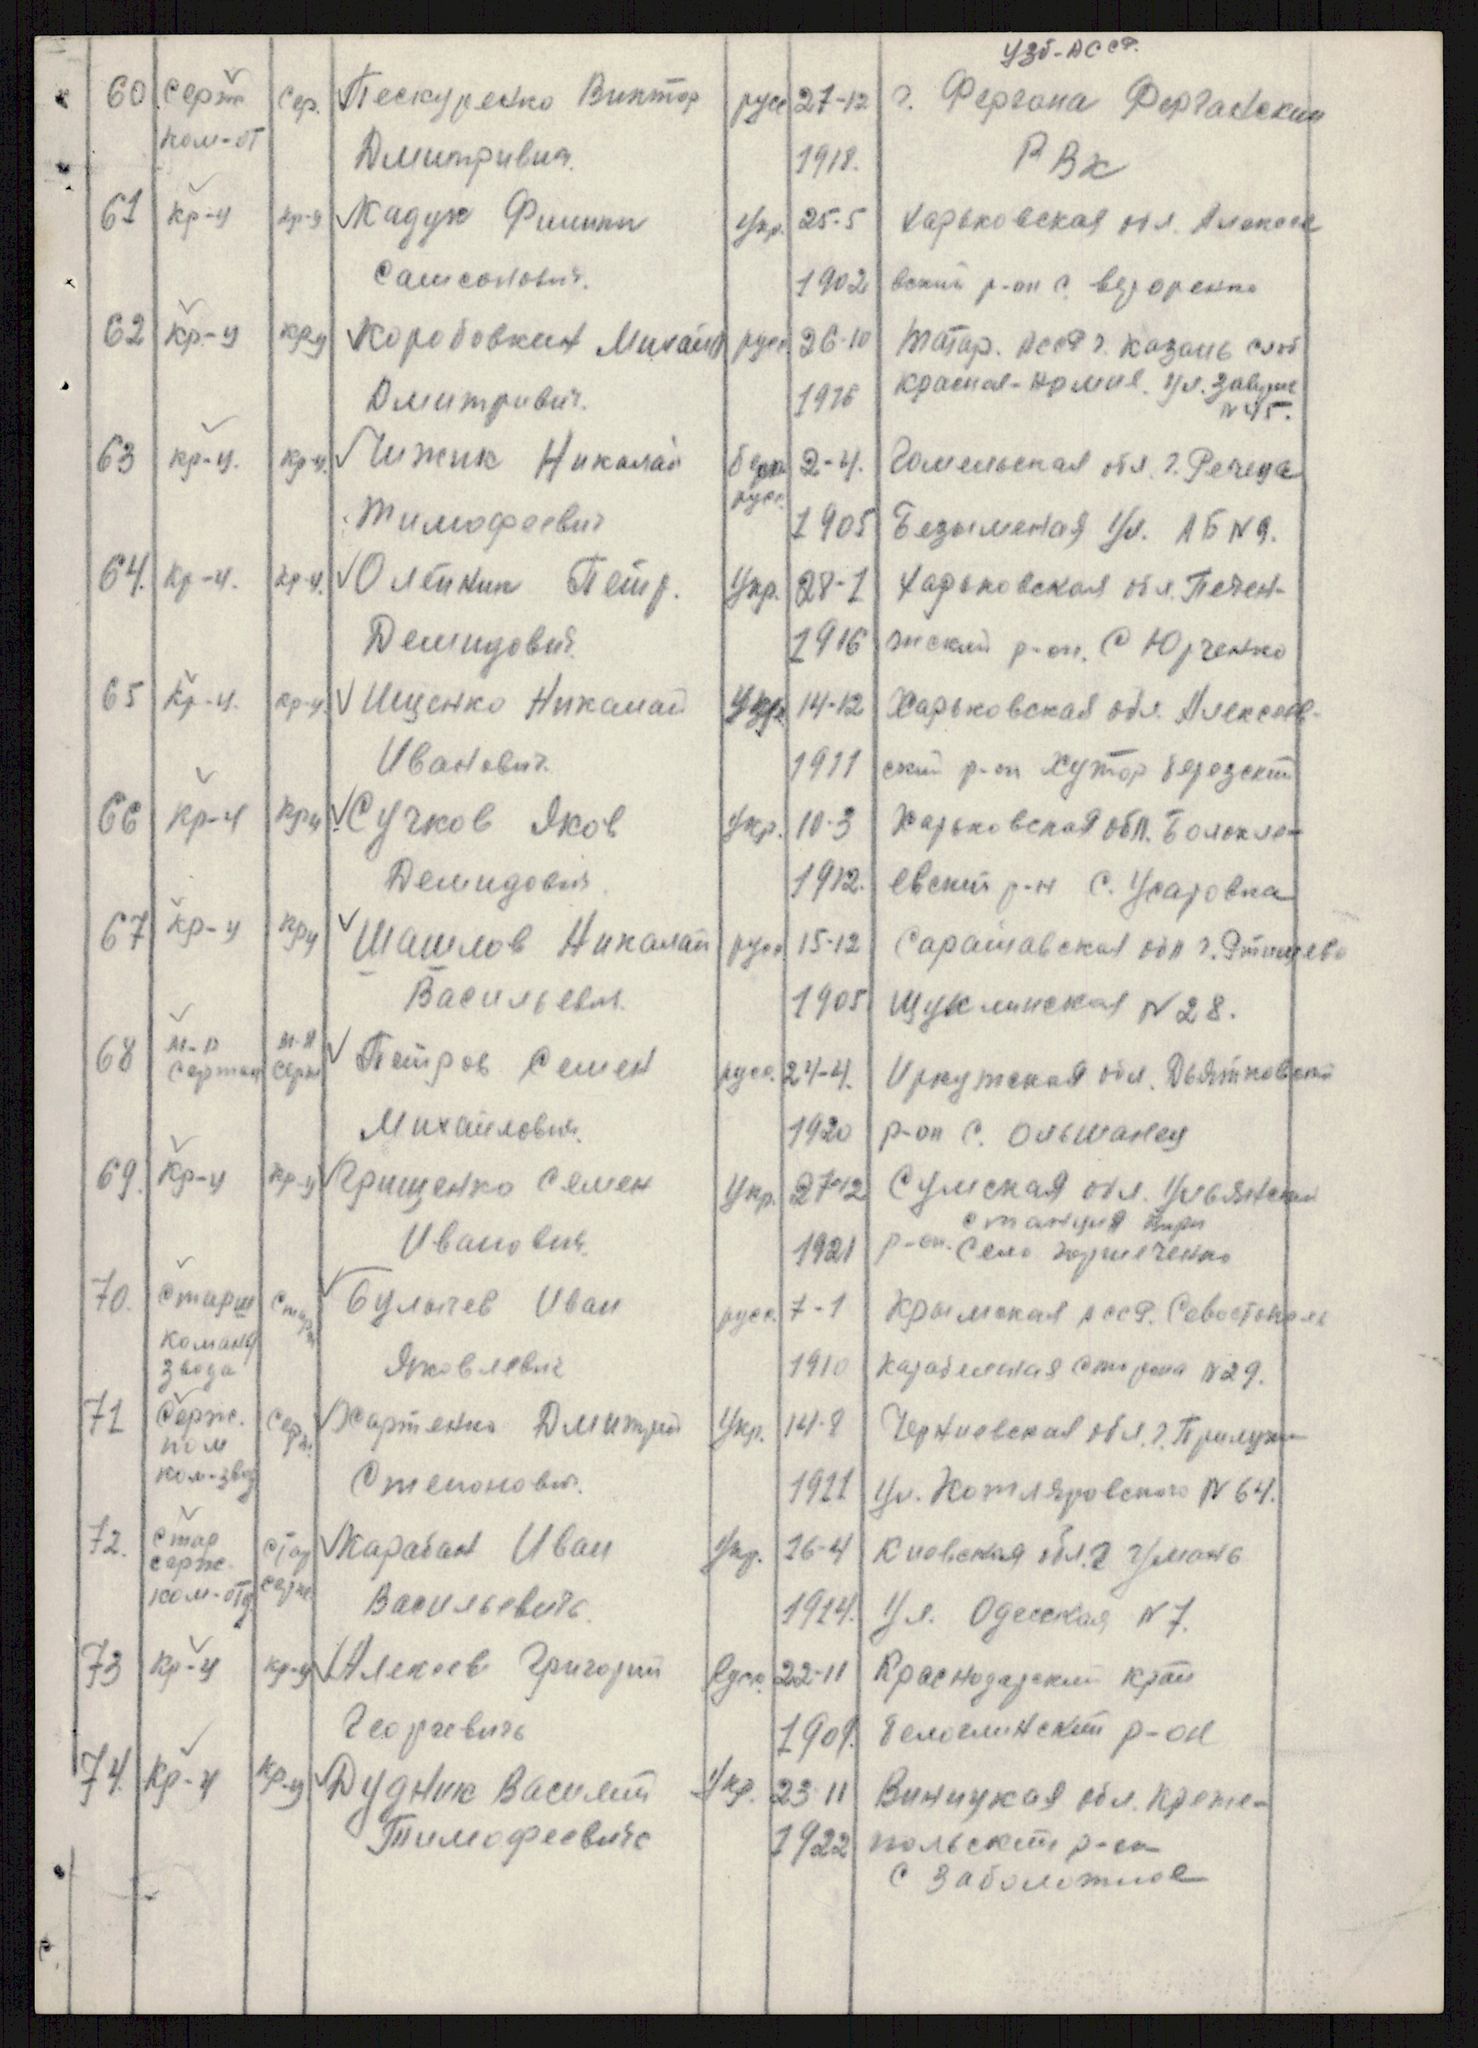 Узб-АССР.
60 Серж Сер. Пескуренко Виктор русс 27-12 г. Фергана Ферганский
ком-от Дмитривич. 1918. РВК
61 кр-ц кр-ц Кадук Филипп Укр. 25-5 Харьковская обл. Алексее
Самсонович. 1902 вский р-он с.
62 кр-ц крц Коробовкин Михаил русс. 26-10 Татар. АССР г. Казань слоб
Дмитривич. 1916 Красная-Армия. ул.
N 45.
63 кр-ц. кр-ц. Чижик Николай бело 2-4. Гомельская обл. г. Речеца
русс.
Тимофеевич 1905 Безыменая Ул. АБ N 9.
64. кр-ц. кр-ц. Олейник Петр. Укр. 28-1 Харьковская обл. Печен-
Демидович. 1916 жский р-он. С Юрченко
65 кр-ц. кр-ц. Ищенко Николай Укр. 14-12 Харьковская обл. Алексеев-
Иванович. 1911 ский р-он Хутор березский
66 кр-ц крц Сучков Яков Укр. 10-3 Харьковская обл. Балакле-
Демидович. 1912. евский р-н С. Усаровка
67 кр-ц крц Шашлов Николай русс. 15-12 Саратавская обл г. Ртищево
Васильевич. 1905 N 28.
68 м-л м-л Петров Семен русс. 24-4. Иркутская обл. Дьятковский
Сержан серж
Михайлович. 1920 р-он С. Ольшанец
69. кр-ц кр-ц Грищенко Семен Укр. 27-12 Сумская обл. Ульянский
станция
Иванович. 1921 р-он. Село
70. Старш Старш Булычев Иван русс. 7-1 Крымская АССР. Севостополь
команд
звода Яковлевич 1910 Карабельная Сторона N 29.
71 Серж. Серж. Хартенко Дмитрий Укр. 14-8 Черниевская обл. г. Прилуки
пом
ком-звод Степонович. 1911 ул. Котляровского N 64.
72. Стар Стар Карабан Иван Укр. 16-4 Киевская обл. г Умань
серж. серж.
ком-отд Васильевичь. 1914. Ул. Одесская N 7.
73 кр-ц кр-ц Алексеев Григорий Русс. 22-11 Краснодарский край
Георгиевичь 1901. белоглинский р-он
74. кр-ц кр-ц Дудник Василий Укр. 23 11 Виницкая обл. Крыже-
Тимофеевичь 1922 польский р-он
С Заболотное